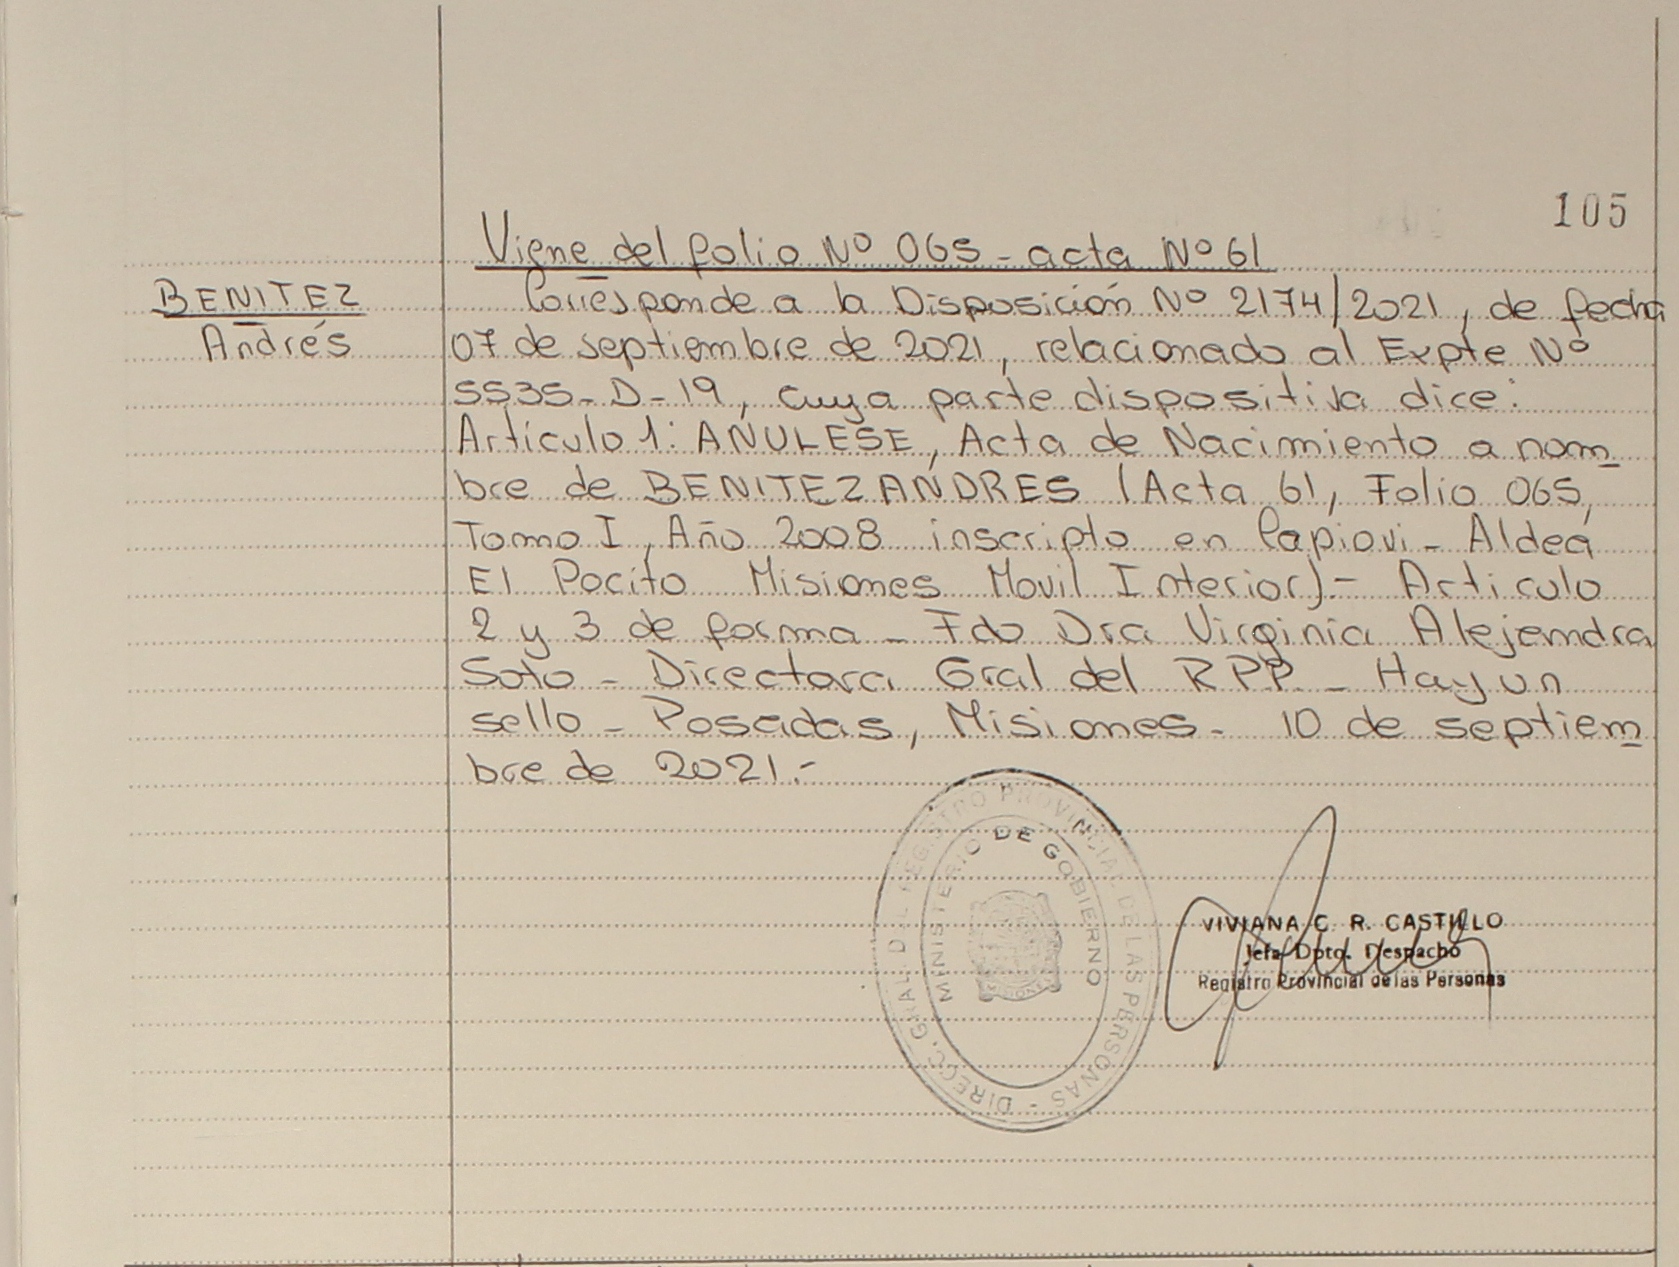 105
Viene del folio Nº 065 - acta Nº 61
BENITEZ
Andrés
Corresponde a la Disposición Nº 2174/2021, de fecha
07 de septiembre de 2021, relacionado al Expte Nº
5535-D-19, cuya parte dispositiva dice:
Artículo 1: ANULESE, Acta de Nacimiento a nom
bre de BENITEZ ANDRES (Acta 61, Folio 065,
Tomo I, Año 2008 inscripto en Capiovi - Aldea
El Pocito Misiones Movil Interior) - Articulo
2 y 3 de forma - Fdo Dra Virginia Alejandra
Soto - Directora Gral del RPP - Hay un
sello - Posadas, Misiones - 10 de septiem
bre de 2021.-
DIRECC. GRAL. DEL REGISTRO PROVINCIAL DE LAS PERSONAS -
MINISTERIO DE GOBIERNO
MISIONES
VIVIANA C. R. CASTILLO
Jefa Dpto. Despacho
Registro Provincial de las Personas